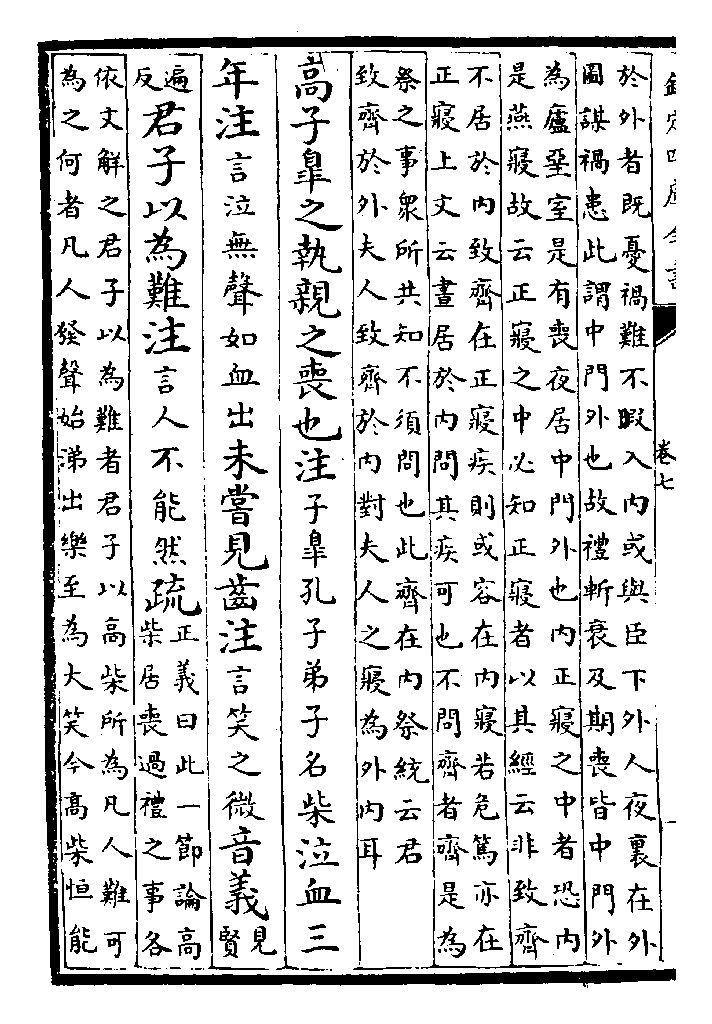 欽定四庫全書
卷七
於外者既憂禍難不暇入内或與臣下外人夜裏在外
圖謀禍患此謂中門外也故禮斬衰及期喪皆中門外
為廬堊室是有喪夜居中門外也内正寢之中者恐内
是燕寢故云正寢之中必知正寢者以其經云非致齊
不居於内致齊在正寢疾則或容在内寢若危篤亦在
正寢上文云晝居於内問其疾可也不問齊者齊是為
祭之事衆所共知不須問也此齊在内祭統云君
致齊於外夫人致齊於内對夫人之寢為外内耳
高子臯之執親之喪也注子臯孔子弟子名柴泣血三
年注言泣無聲如血出未嘗見齒注言笑之微音義見賢
遍反君子以為難注言人不能然疏正義曰此一節論高柴居喪過禮之事各
依文解之君子以為難者君子以高柴所為凡人難可
為之何者凡人發聲始涕出樂至為大笑今高柴恒能